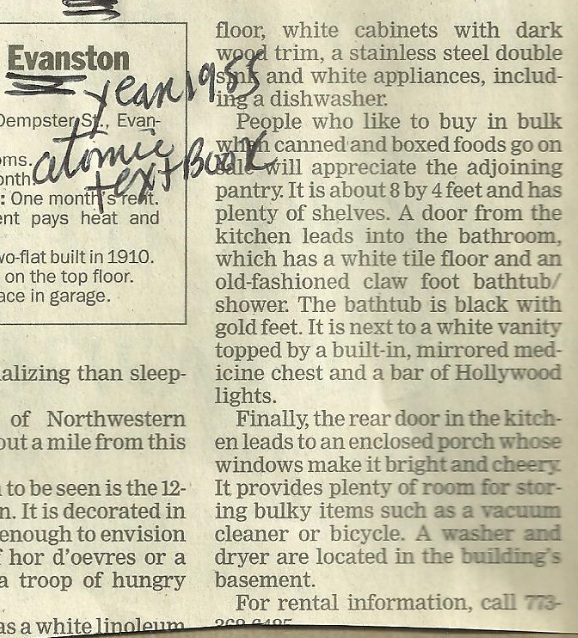 Evanston
year 1955
Dempster St., Evan-
atomic
text Book
oms.
onth.
: One month's rent.
ent pays heat and
wo-flat built in 1910.
on the top floor.
ace in garage.
alizing than sleep-
of Northwestern
out a mile from this
to be seen is the 12-
n. It is decorated in
enough to envision
f hor d'oevres or a
a troop of hungry
as a white linoleum
floor, white cabinets with dark
wood trim, a stainless steel double
sink and white appliances, includ-
ing a dishwasher.
People who like to buy in bulk
when canned and boxed foods go on
sale will appreciate the adjoining
pantry. It is about 8 by 4 feet and has
plenty of shelves. A door from the
kitchen leads into the bathroom,
which has a white tile floor and an
old-fashioned claw foot bathtub/
shower. The bathtub is black with
gold feet. It is next to a white vanity
topped by a built-in, mirrored med-
icine chest and a bar of Hollywood
lights.
Finally, the rear door in the kitch-
en leads to an enclosed porch whose
windows make it bright and cheery.
It provides plenty of room for stor-
ing bulky items such as a vacuum
cleaner or bicycle. A washer and
dryer are located in the building's
basement.
For rental information, call 773-